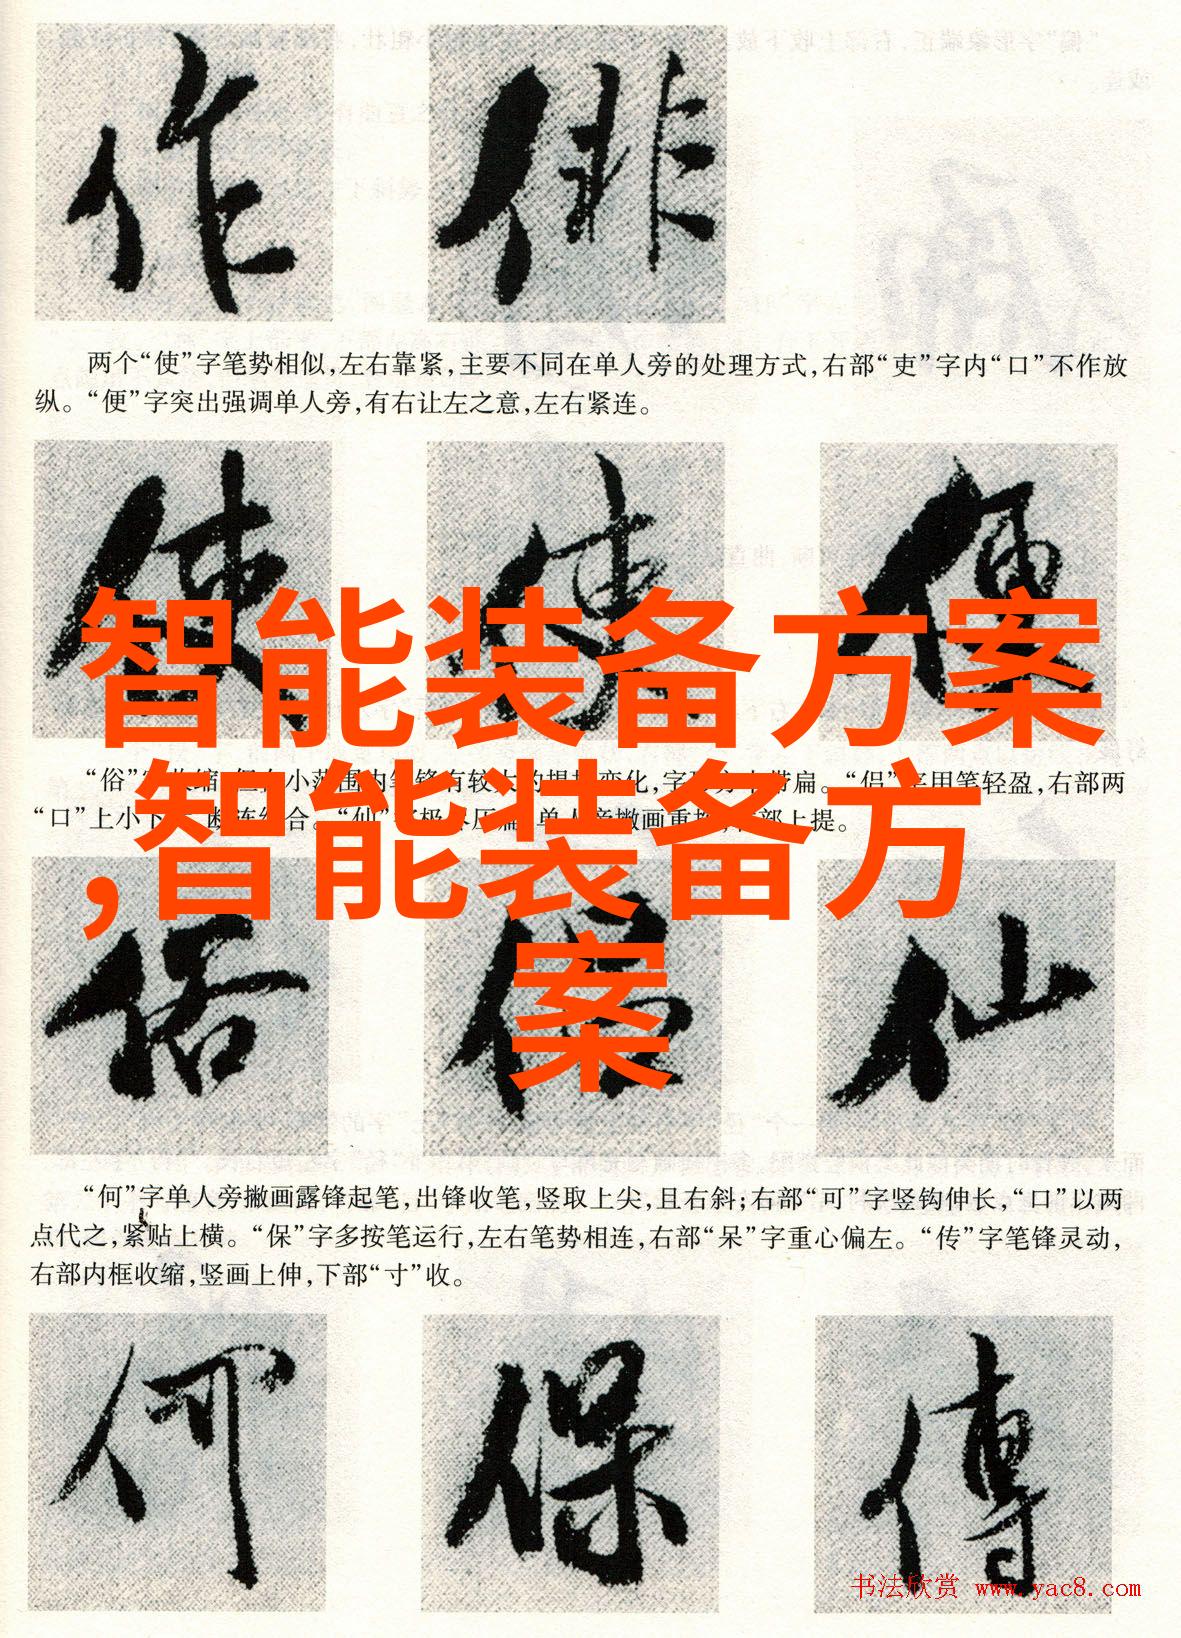 作 俳
两个“使”字笔势相似,左右靠紧,主要不同在单人旁的处理方式,右部“吏”字内“口”不作放
纵。“便”字突出强调单人旁,有右让左之意,左右紧连。
使 使 便
智能装备方案
“俗”字收缩,但在小范围内笔锋有较大的提按变化,字形分布带扁。“侣”字用笔轻盈,右部两
“口”上小下大,断连结合。“仙”字极尽压扁,单人旁撇画重按,右部上提。
,智能装备方
案
俗 侣 仙
“何”字单人旁撇画露锋起笔,出锋收笔,竖取上尖,且右斜;右部“可”字竖钩伸长,“口”以两
点代之,紧贴上横。“保”字多按笔运行,左右笔势相连,右部“呆”字重心偏左。“传”字笔锋灵动,
右部内框收缩,竖画上伸,下部“寸”收。
何 保 傳
书法欣赏 www.yac8.com